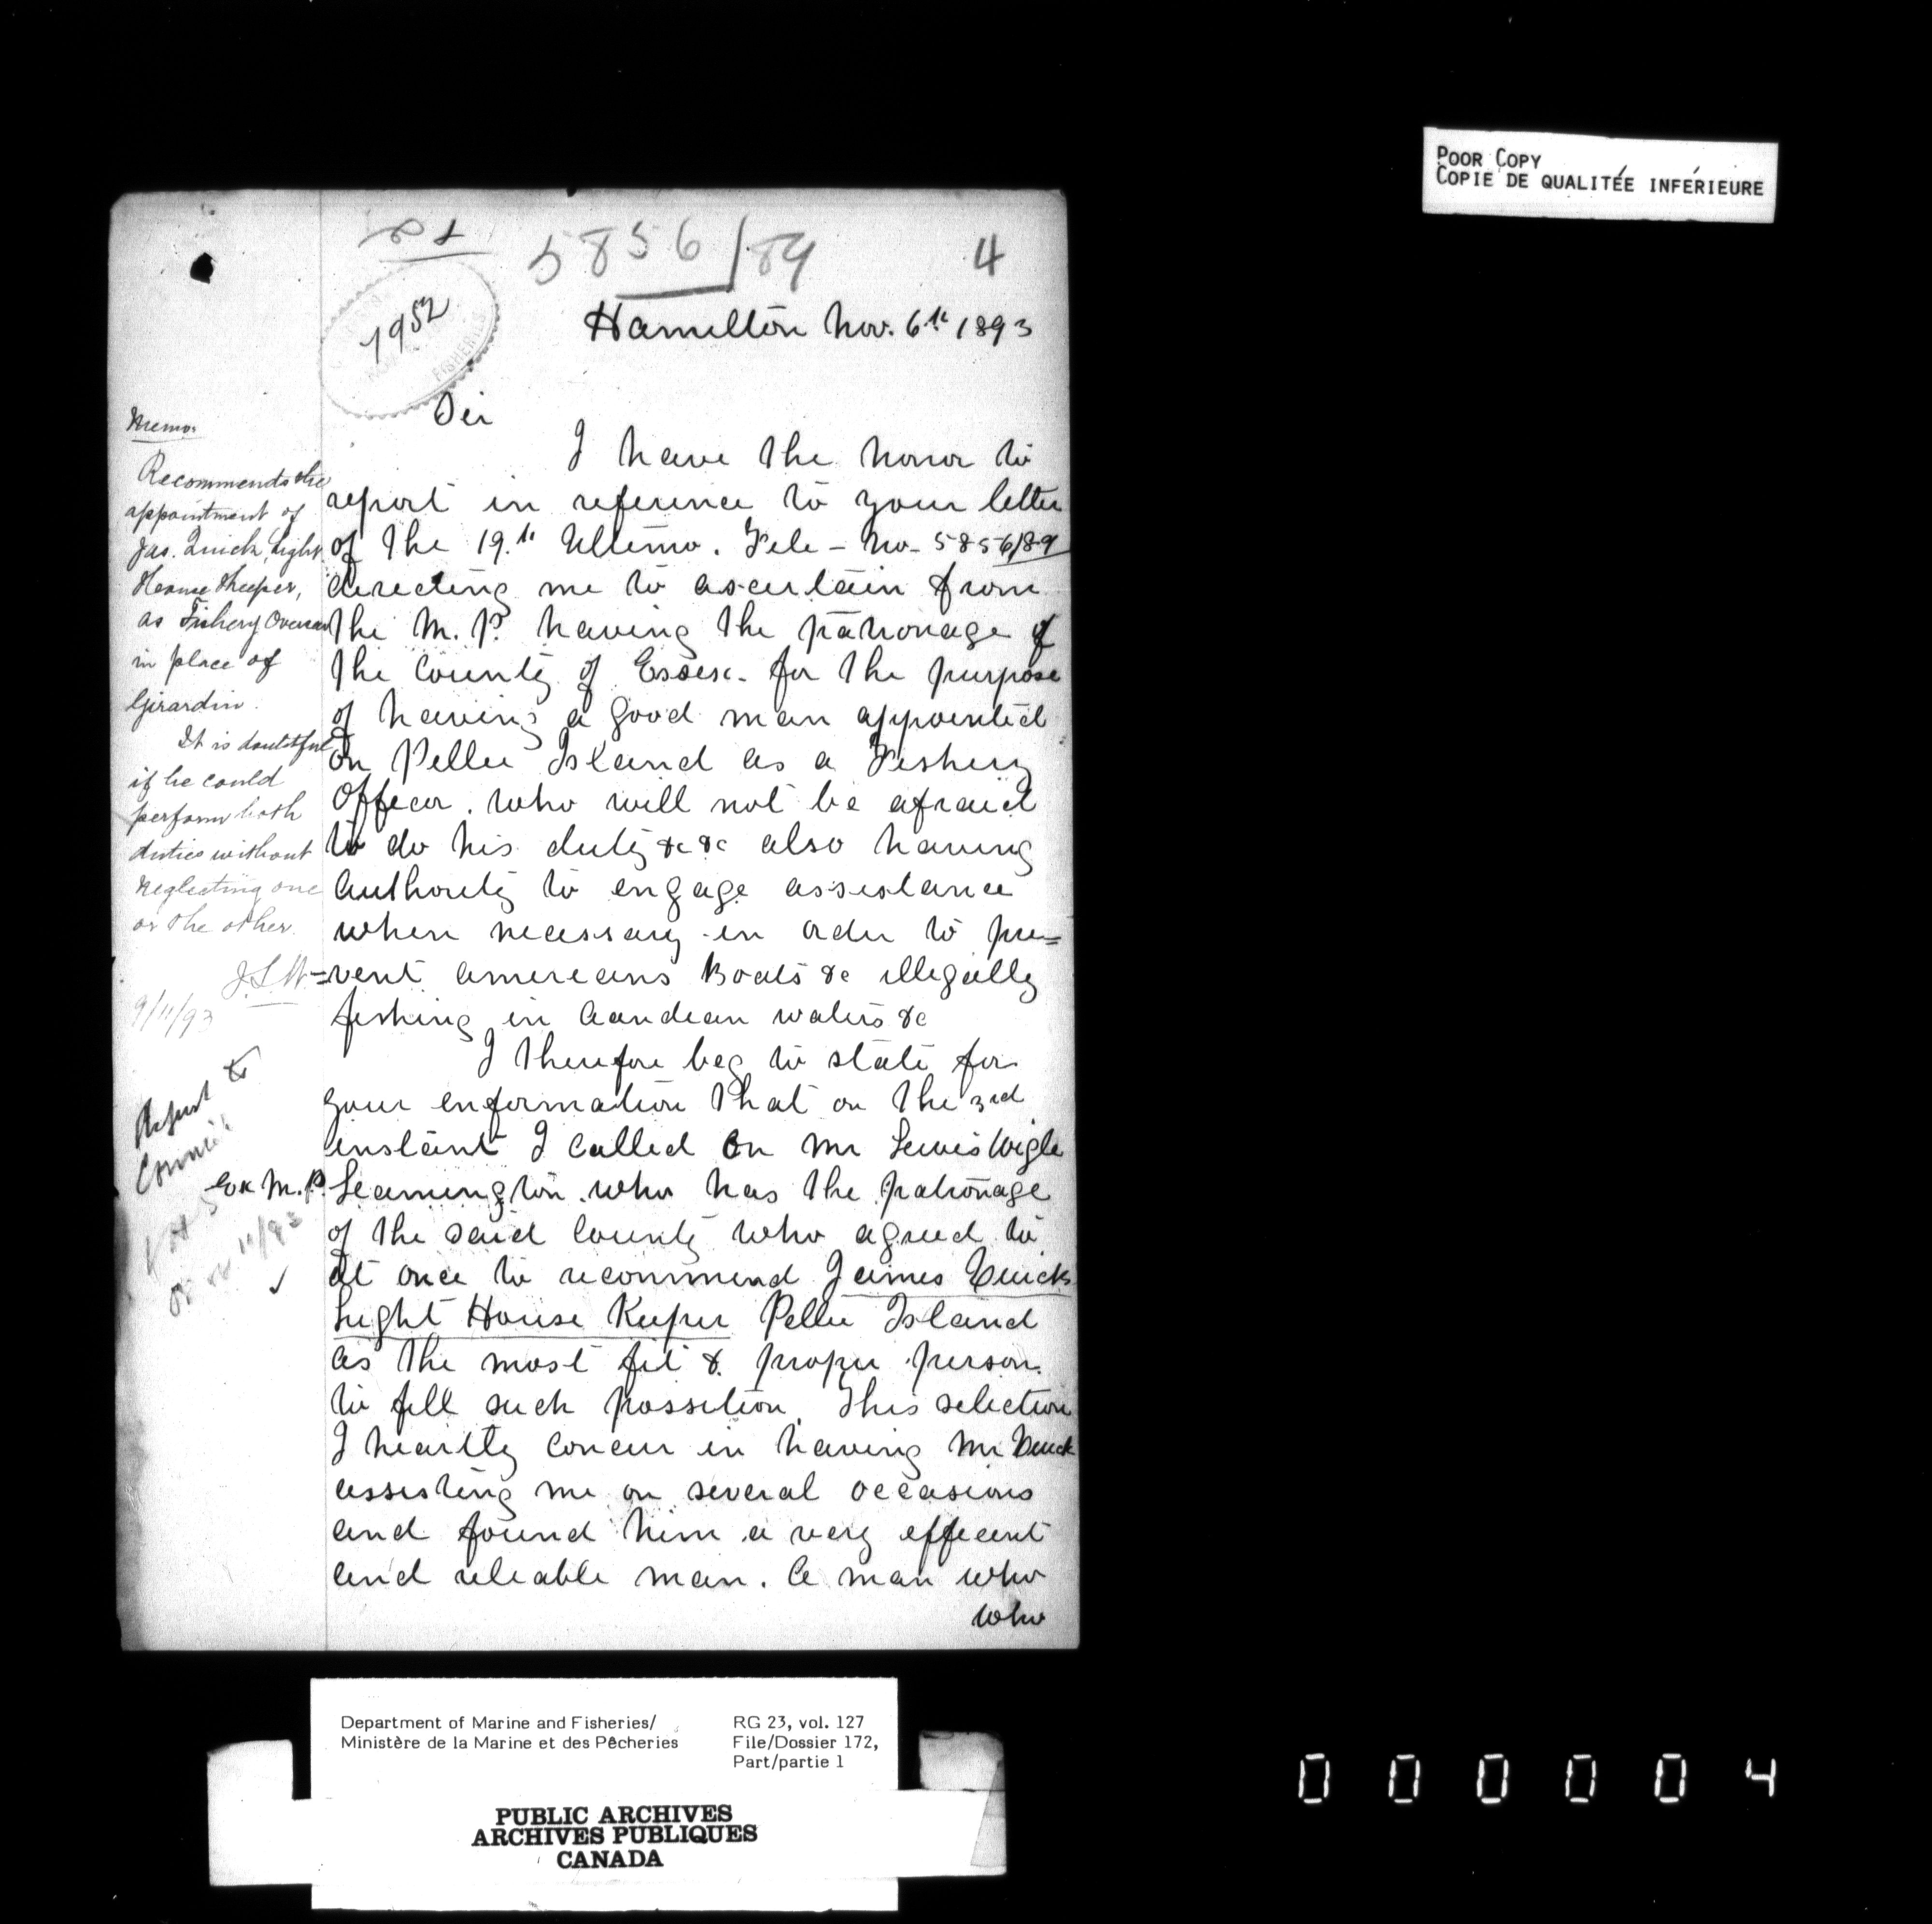 POOR COPY
COPIE DE QUALITÉE INFÉRIEURE
5856/89
4
1952
FISHERIES
Hamilton Nov. 6th 1893
Sir
I have the honor to
report in reference to your letter
of the 19.th Ultimo. File - No- 5856/89
directing me to ascertain from
the M.P. having the patronage of
the County of Essex - for the purpose
of having a good man appointed
on Pellee Island as a Fishery
Officer. who will not be afraid
to do his duty &c &c also having
authority to engage assistance
when necessary in order to pre=
=vent americans Boats &c illegally
fishing in Canadian waters &c
I therefore beg to state for
your information that on the 3rd
instant I called on Mr Lewis Wigle
Ex M.P. Leamington. who has the patronage
of the said County who agreed to
at once to recommend James Quick
Light House Keeper Pellee Island
as the most fit & proper person
to fill such possition. This selection
I heartly concur in having Mr Quick
assisting me on several occasions
and found him a very efficent
and reliable man. A man who
who
Memo.
Recommends the
appointment of
Jas. Quick, Light
House Keeper,
as Fishery Overseer
in place of
Girardin.
It is doubtful
if he could
perform both
duties without
neglecting one
or the other.
J.S.W.
9/11/93
Report to
Council
11/93
Department of Marine and Fisheries/
Ministère de la Marine et des Pêcheries
RG 23, vol. 127
File/Dossier 172,
Part/partie 1
PUBLIC ARCHIVES
ARCHIVES PUBLIQUES
CANADA
000004